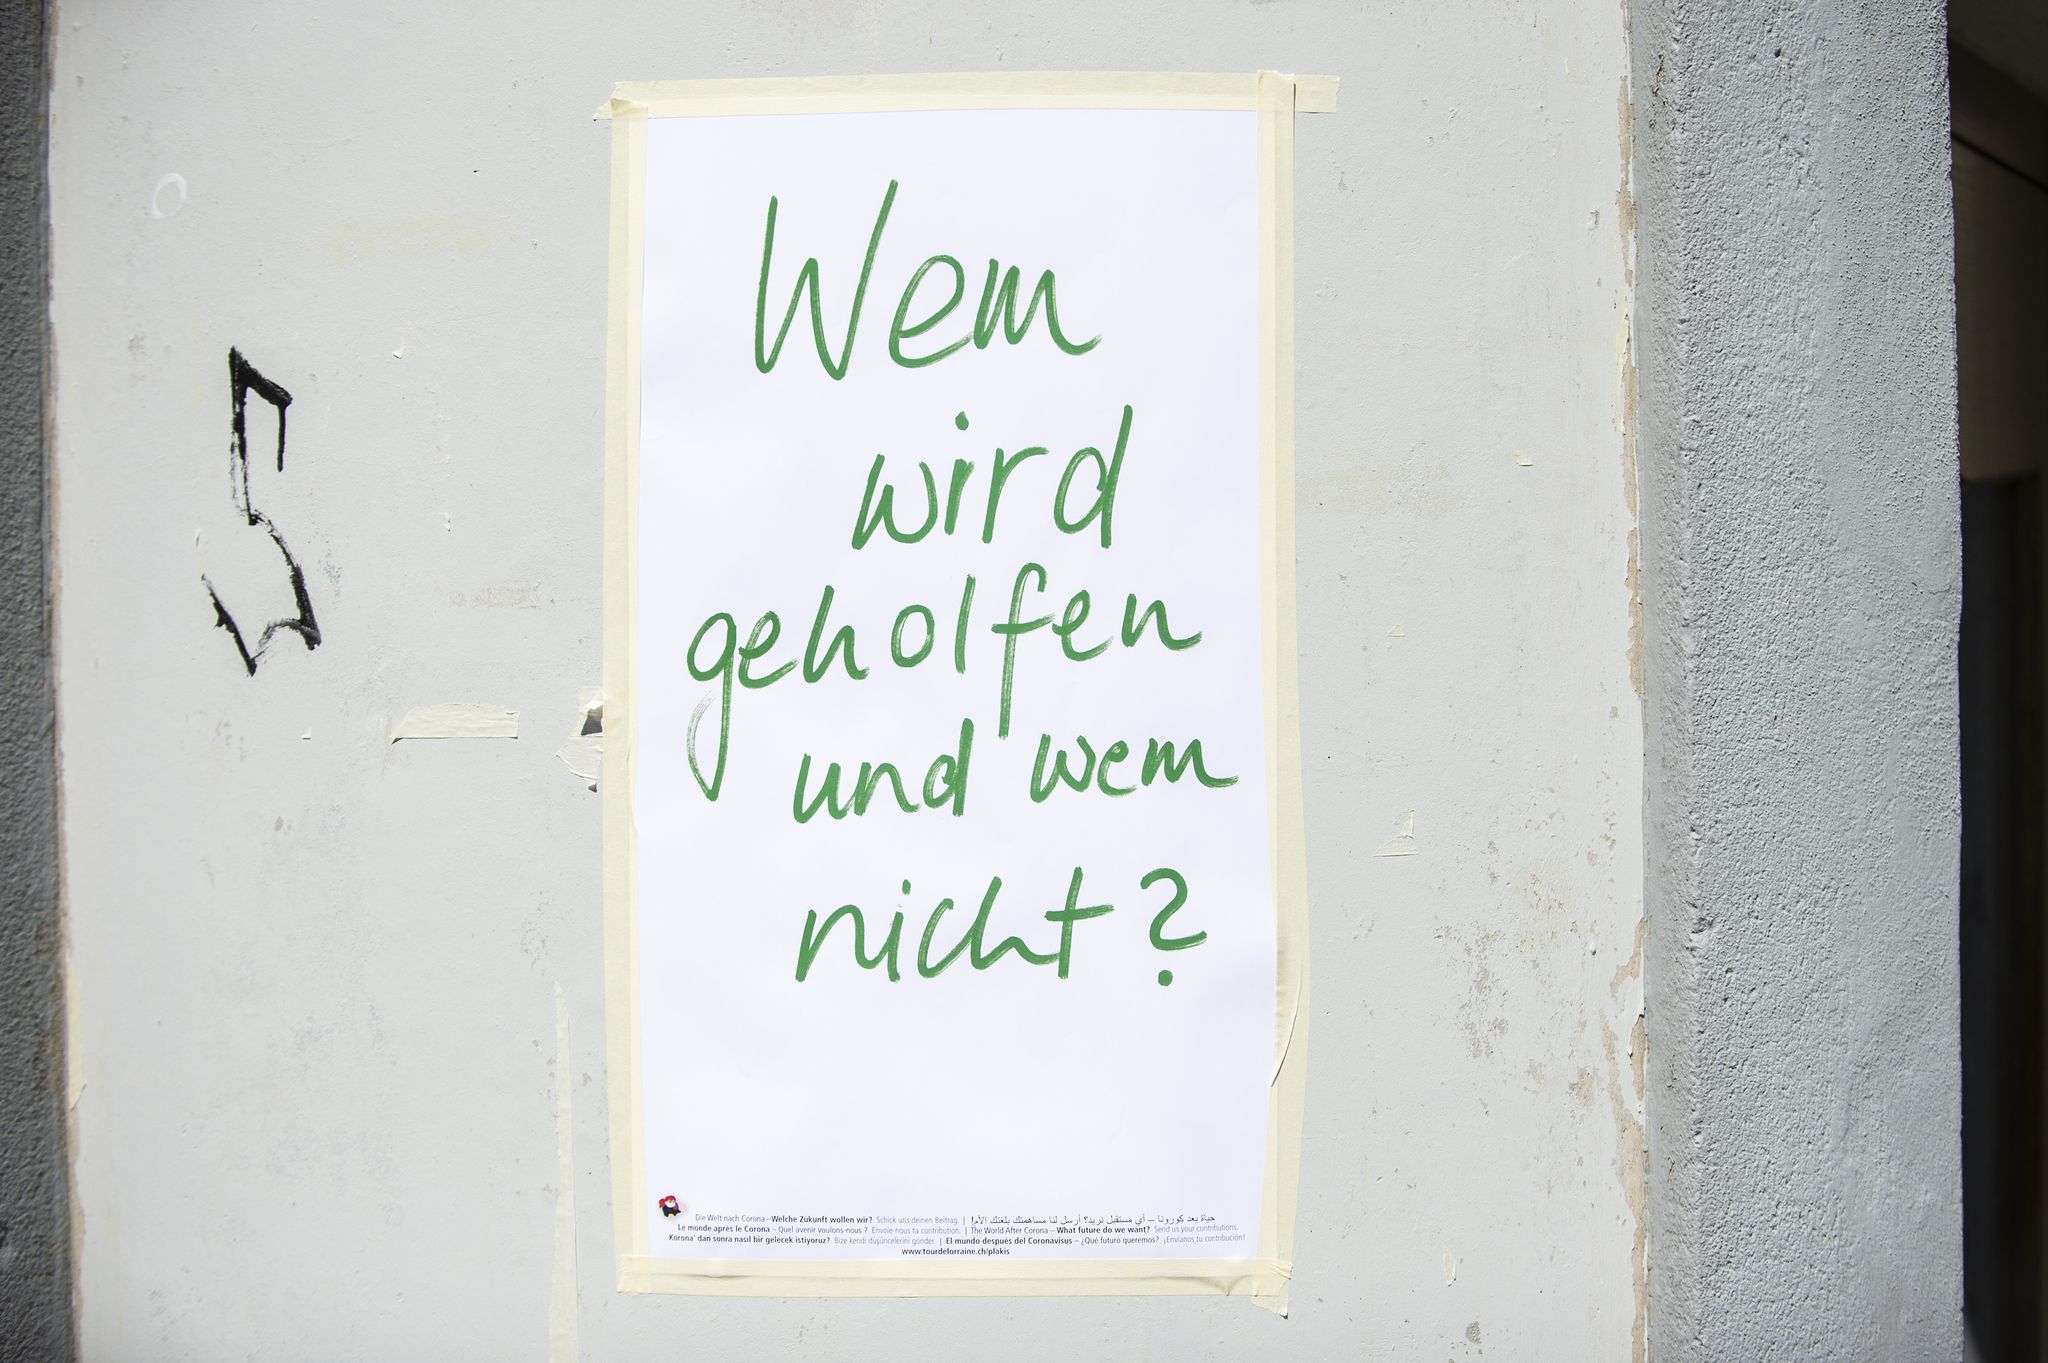 Wem
wird
geholfen
und wem
nicht?
Die Welt nach Corona – Welche Zukunft wollen wir? Schick uns deinen Beitrag. | حياة بعد كورونا – أي مستقبل نريد؟ أرسل لنا مساهمتك بلغتك الأم!
Le monde après le Corona – Quel avenir voulons-nous ? Envoie-nous ta contribution. | The World After Corona – What future do we want? Send us your contributions.
Korona' dan sonra nasıl bir gelecek istiyoruz? Bize kendi düşüncelerini gönder. | El mundo después del Coronavisus – ¿Qué futuro queremos? ¡Envíanos tu contribución!
www.tourdelorraine.ch/plakis